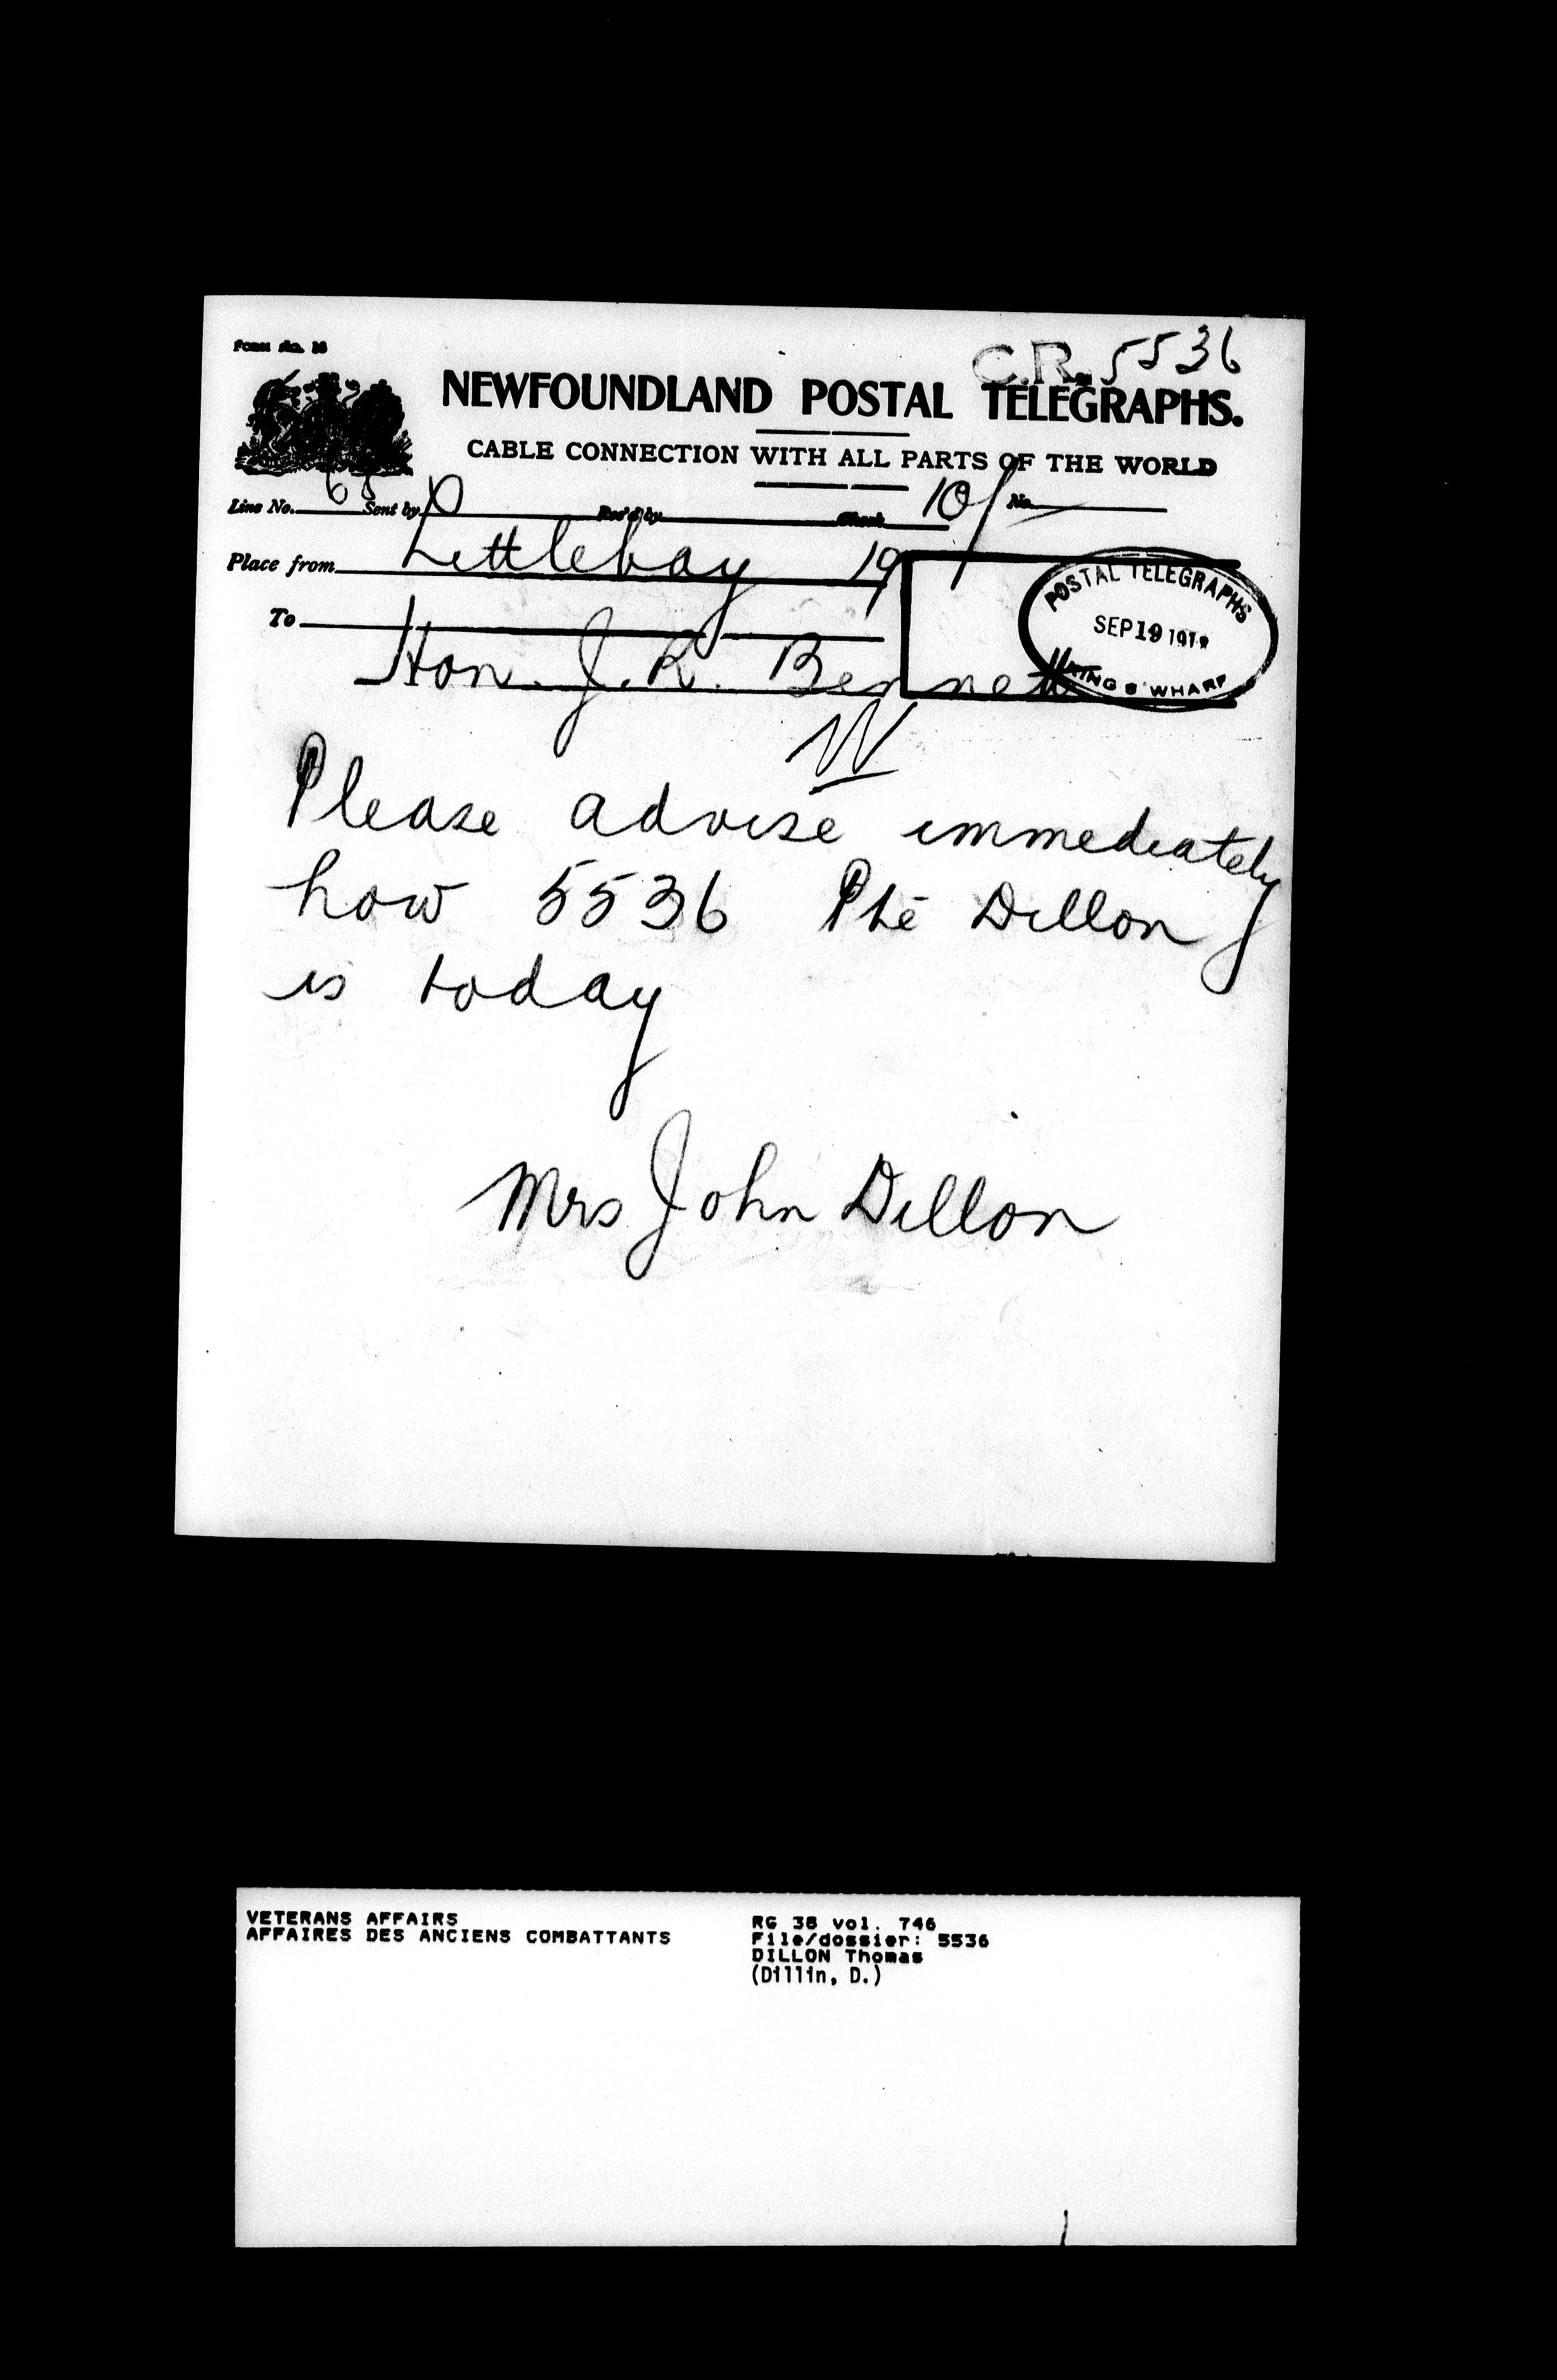 Form No. 16
C.R. 5536
NEWFOUNDLAND POSTAL TELEGRAPHS.
CABLE CONNECTION WITH ALL PARTS OF THE WORLD
Line No. 68 Sent by Rec'd by Check 10/ No.
Place from Littlebay 19
To
Hon. J. R. Bennett
POSTAL TELEGRAPHS
SEP 19
KING'S WHARF
Please advise immediately
how 5536 Pte Dillon
is today
Mrs John Dillon
VETERANS AFFAIRS
AFFAIRES DES ANCIENS COMBATTANTS
RG 38 vol. 746
File/dossier: 5536
DILLON Thomas
(Dillin, D.)